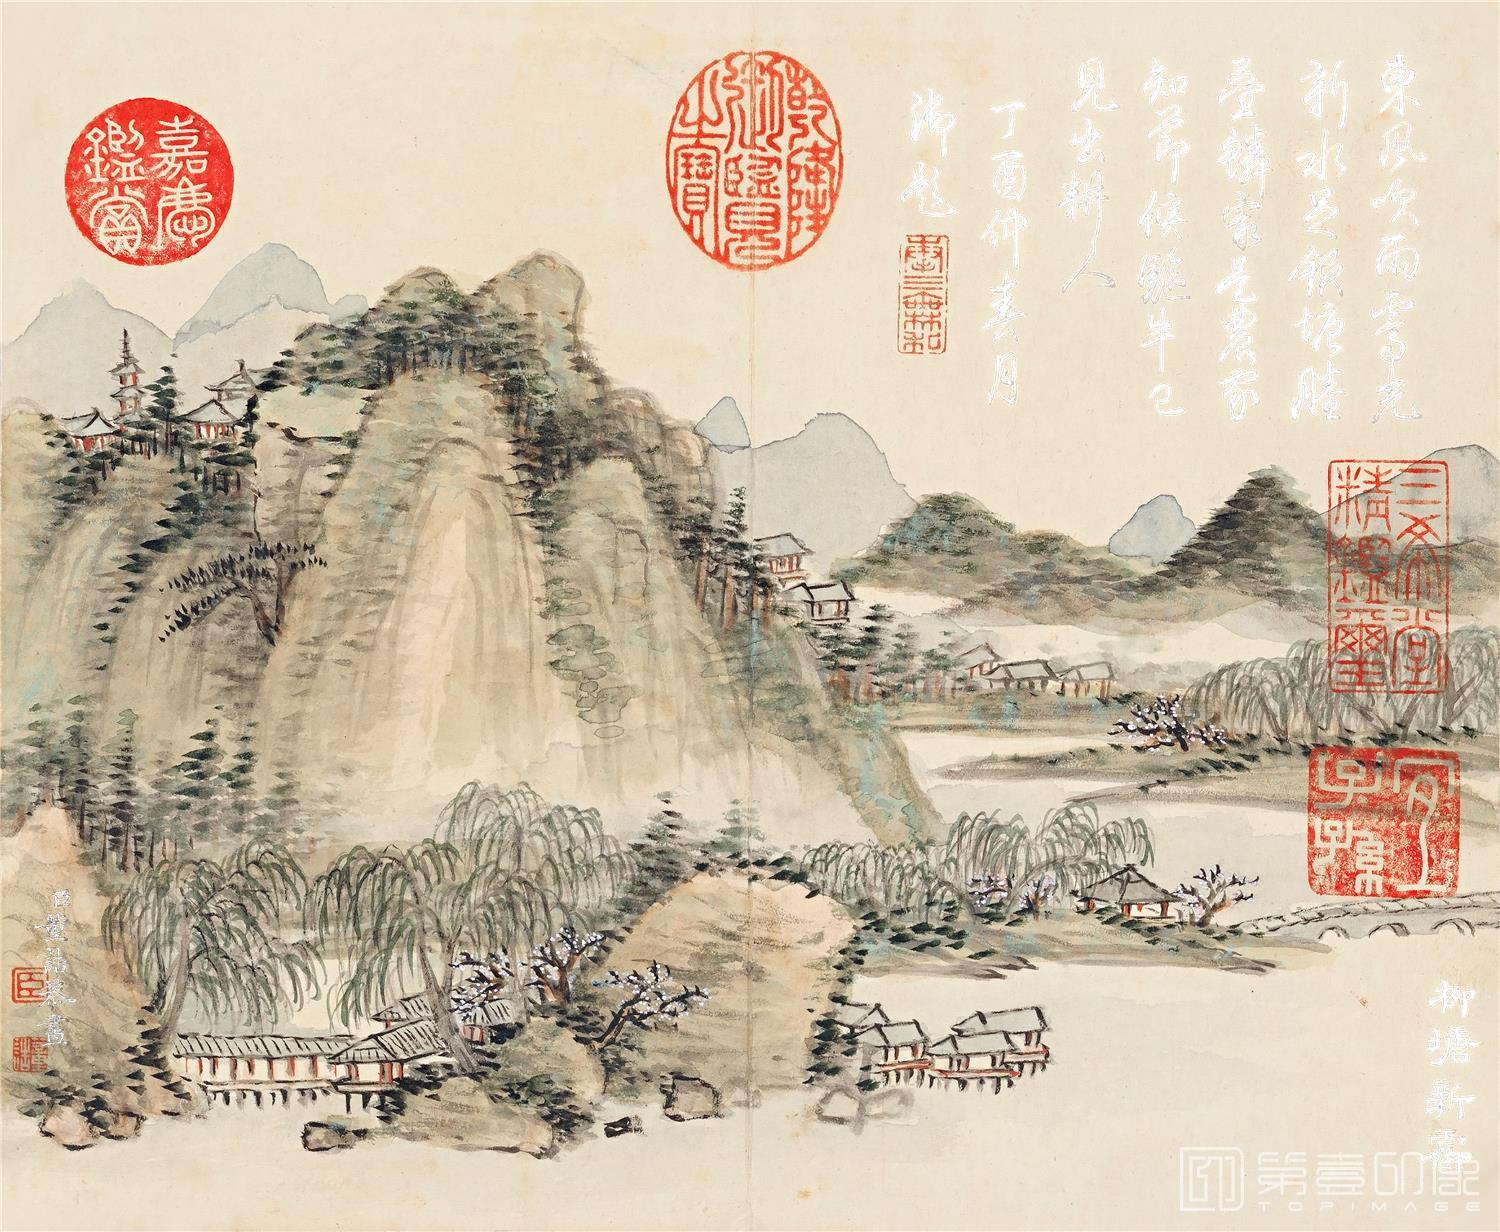 東風吹雨霽光
新水足銀塘膡
疊鱗家是農家
知節候驅牛已
見出耕人
丁酉仲春月
御題
乾隆御覽之寶
嘉慶鑑賞
三希堂精鑑璽
宜子孫
柳塘新霽
臣董誥恭畫
臣
第壹印像
TOPIMAGE